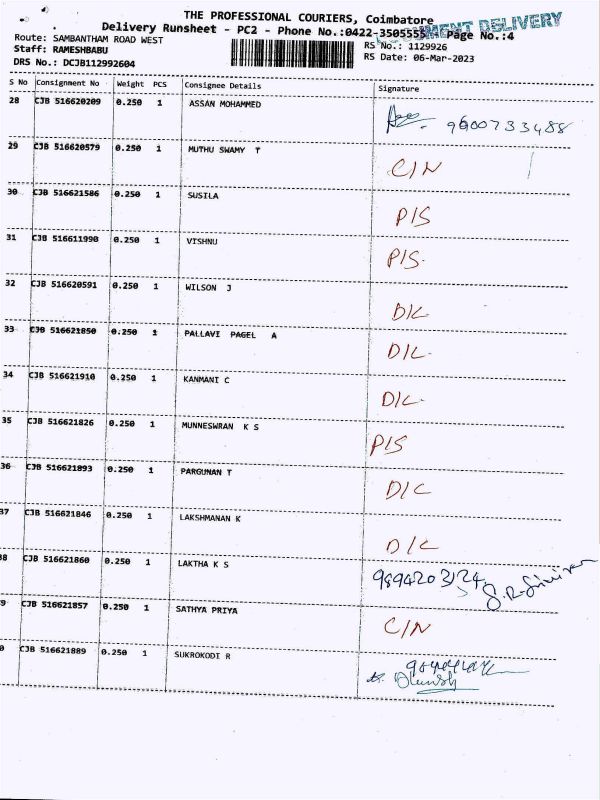 THE PROFESSIONAL COURIERS, Coimbatore
Delivery Runsheet - PC2 - Phone No.:0422-3505555 Page No.:4
DOCUMENT DELIVERY
Route: SAMBANTHAM ROAD WEST RS No.: 1129926
Staff: RAMESHBABU RS Date: 06-Mar-2023
DRS No.: DCJB112992604
S No Consignment No Weight PCS Consignee Details Signature
28 CJB 516620209 0.250 1 ASSAN MOHAMMED 9600733488
29 CJB 516620579 0.250 1 MUTHU SWAMY T C/N
30 CJB 516621586 0.250 1 SUSILA P/S
31 CJB 516611990 0.250 1 VISHNU P/S.
32 CJB 516620591 0.250 1 WILSON J D/L
33 CJB 516621850 0.250 1 PALLAVI PAGEL A D/L.
34 CJB 516621910 0.250 1 KANMANI C D/L.
35 CJB 516621826 0.250 1 MUNNESWRAN K S P/S
36 CJB 516621893 0.250 1 PARGUNAN T D/L
37 CJB 516621846 0.250 1 LAKSHMANAN K D/L
38 CJB 516621860 0.250 1 LAKTHA K S 9894203124
9 CJB 516621857 0.250 1 SATHYA PRIYA C/N
0 CJB 516621889 0.250 1 SUKROKODI R